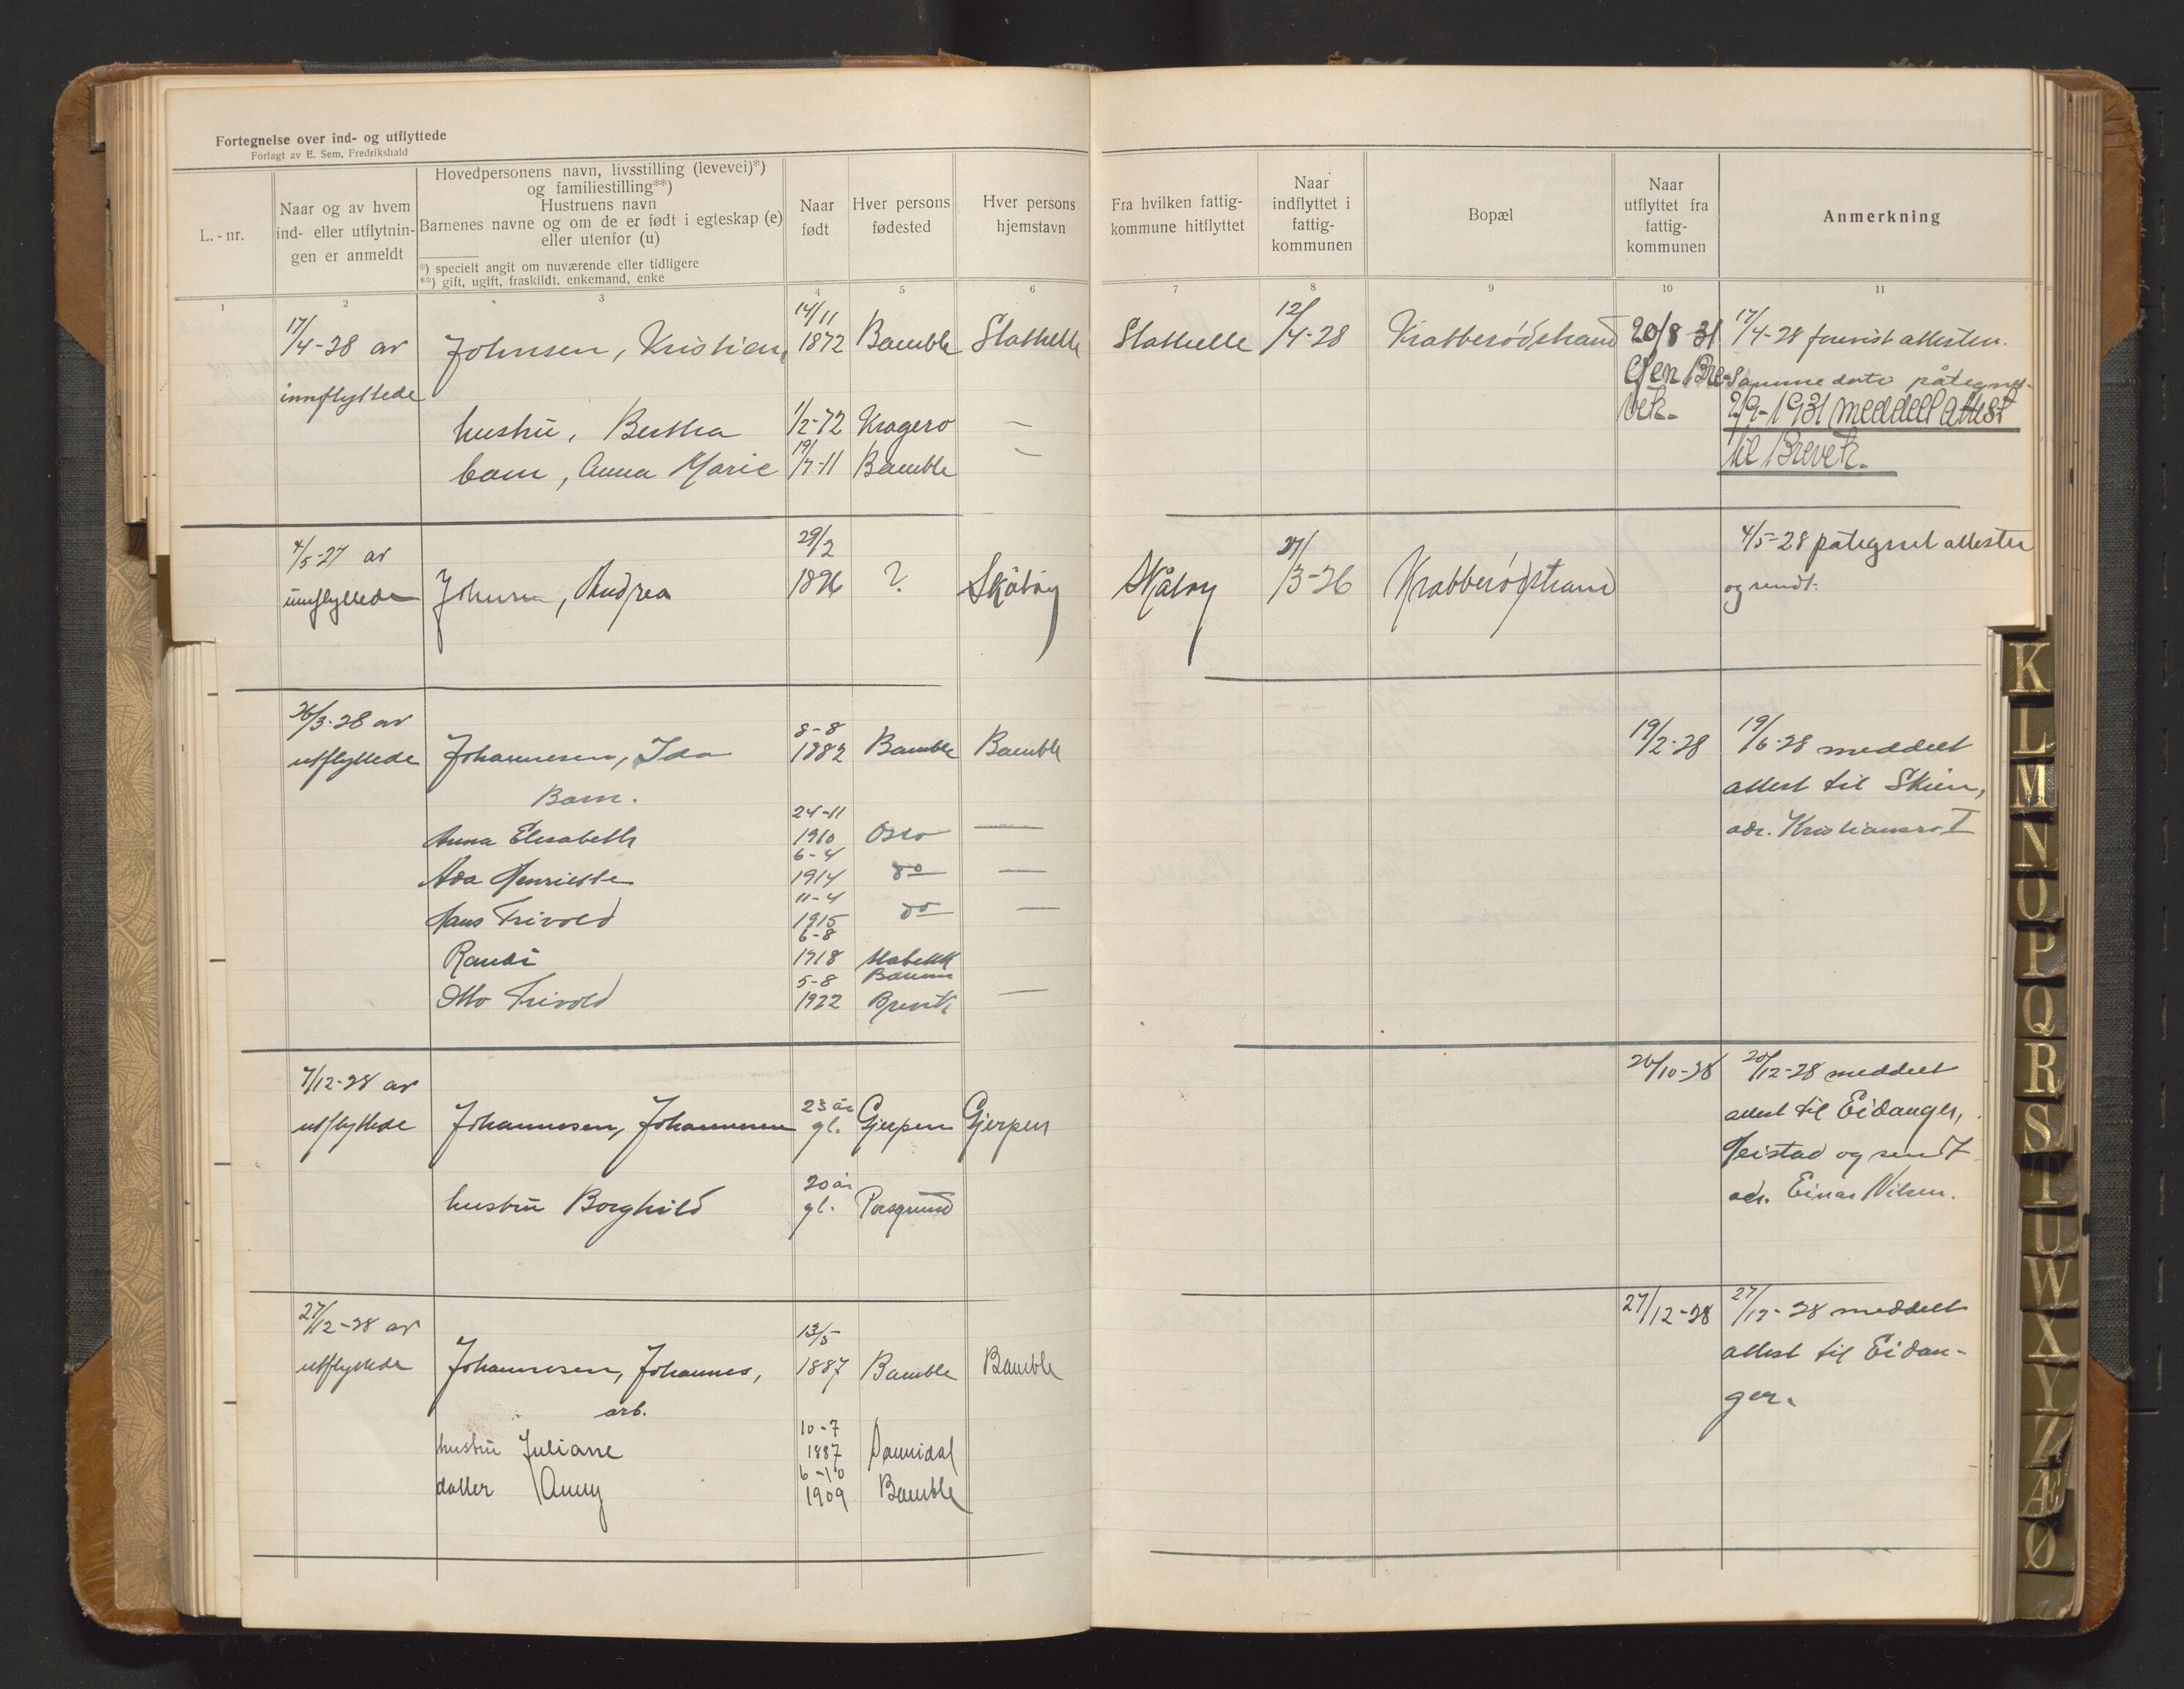 Fortegnelse over ind- og utflyttede
Forlagt av E. Sem, Fredrikshald
L.-nr.
Naar og av hvem
ind- eller utflytnin-
gen er anmeldt
Hovedpersonens navn, livsstilling (levevei)*)
og familiestilling**)
Hustruens navn
Barnenes navne og om de er født i egteskap (e)
eller utenfor (u)
*) specielt angit om nuværende eller tidligere
**) gift, ugift, fraskildt. enkemand, enke
Naar
født
Hver persons
fødested
Hver persons
hjemstavn
Fra hvilken fattig-
kommune hitflyttet
Naar
indflyttet i
fattig-
kommunen
Bopæl
Naar
utflyttet fra
fattig-
kommunen
Anmerkning
1 2 3 4 5 6 7 8 9 10 11
17/4-28 av
innflyttede
Johnsen, Kristian,
14/11
1872 Bamble Stathelle Stathelle 12/4-28 Krabberødstrand 20/8 31
Bre-
vik.
17/4-28 attesten.
Samme dato påtegnet
2/9-1931 meddelt attest
til Brevik.
hustru, Bertha 1/2-72 Kragerø —
barn, Anna Marie 19/7-11 Bamble —
4/5-27 av
innflyttede
Johnsen, Andrea
29/2
1896 ? Skåtøy Skåtøy 27/3-26 Krabberødstrand
4/5-28 påtegnet attesten
og sendt.
26/3-28 av
utflyttede
Johannesen, Ida
8-8
1882 Bamble Bamble
19/2-28
19/6-28 meddelt
attest til Skien,
adr. I
Barn.
Anna Elisabeth
24-11
1910 Oslo —
Ada Henriette
6-4
1914 do —
Hans Trivold
11-4
1915 do —
Randi
6-8
1918 Stabekk
Bærum
Otto Trivold
5-8
1922 Brevik —
7/12-28 av
utflyttede
Johannesen, Johannesen
23 år
gl. Gjerpen Gjerpen
20/10-28
20/12-28 meddelt
attest til Eidanger,
Heistad og sendt
adr. Einar Nilsen.
hustru Borghild
20 år
gl. Porsgrund
27/12-28 av
utflyttede
Johannesen, Johannes,
arb.
13/5
1887 Bamble Bamble
27/12-28
27/12-28 meddelt
attest til Eidan-
ger.
hustru Juliane
10-7
1887 Sannidal
datter Anny
6-10
1909 Bamble
K
L
M
N
O
P
Q
R
S
T
U
W
X
Y
Z
Æ
Ø